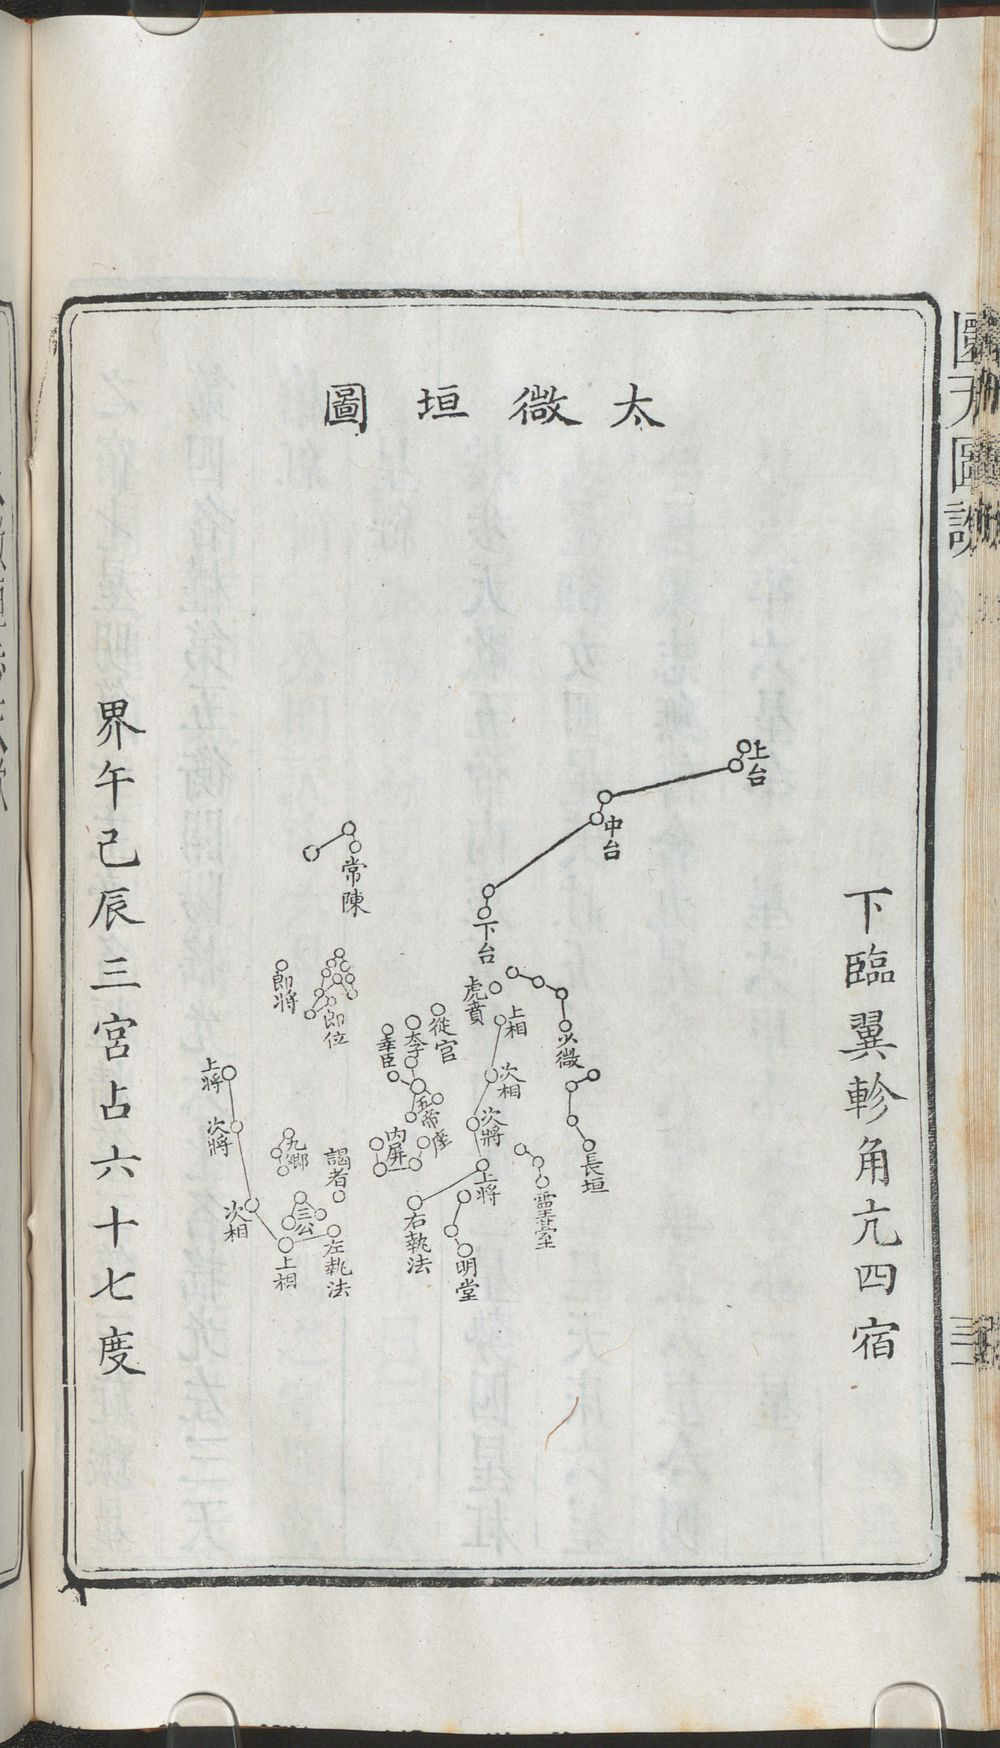 太微垣圖
下臨翼軫角亢四宿
上台
中台
下台
常陳
郎將
郎位
虎賁
上相
少微
從官
太子
幸臣
五帝座
次相
次將
長垣
上將
次將
內屏
九卿
謁者
上將
靈臺
次相
三公
右執法
明堂
左執法
上相
界午巳辰三宮占六十七度
圜天圖說